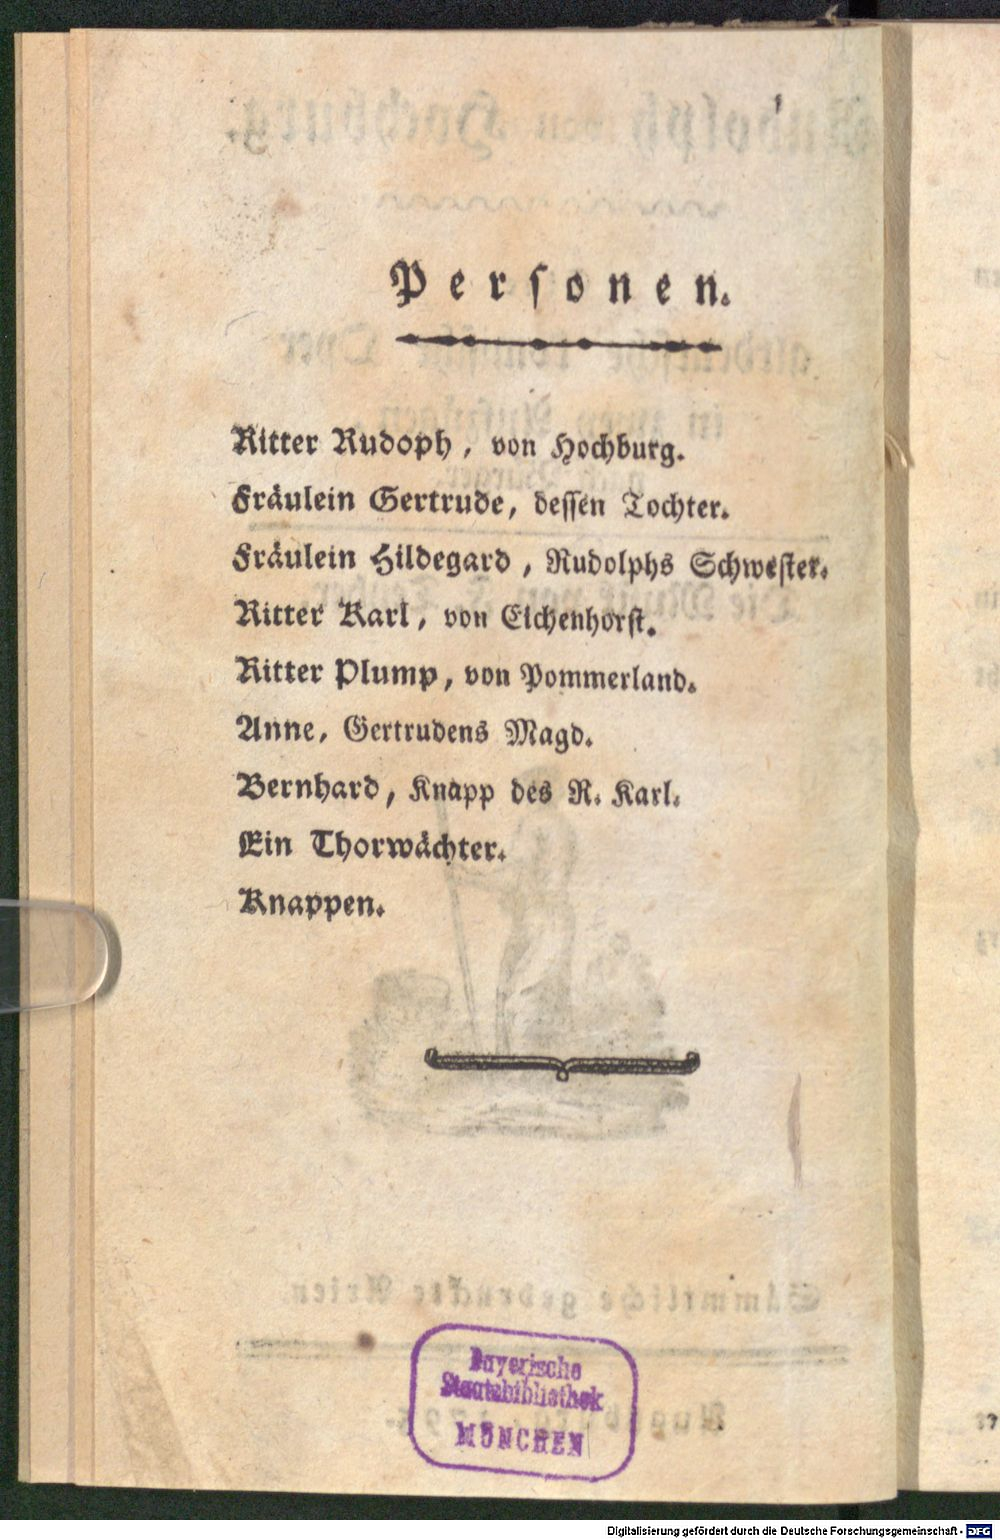 Personen.
Ritter Rudoph, von Hochburg.
Fräulein Gertrude, dessen Tochter.
Fräulein Hildegard, Rudolphs Schwester.
Ritter Karl, von Eichenhorst.
Ritter Plump, von Pommerland.
Anne, Gertrudens Magd.
Bernhard, Knapp des R. Karl.
Ein Thorwächter.
Knappen.
Bayerische
Staatsbibliothek
MÜNCHEN
Digitalisierung gefördert durch die Deutsche Forschungsgemeinschaft - DFG